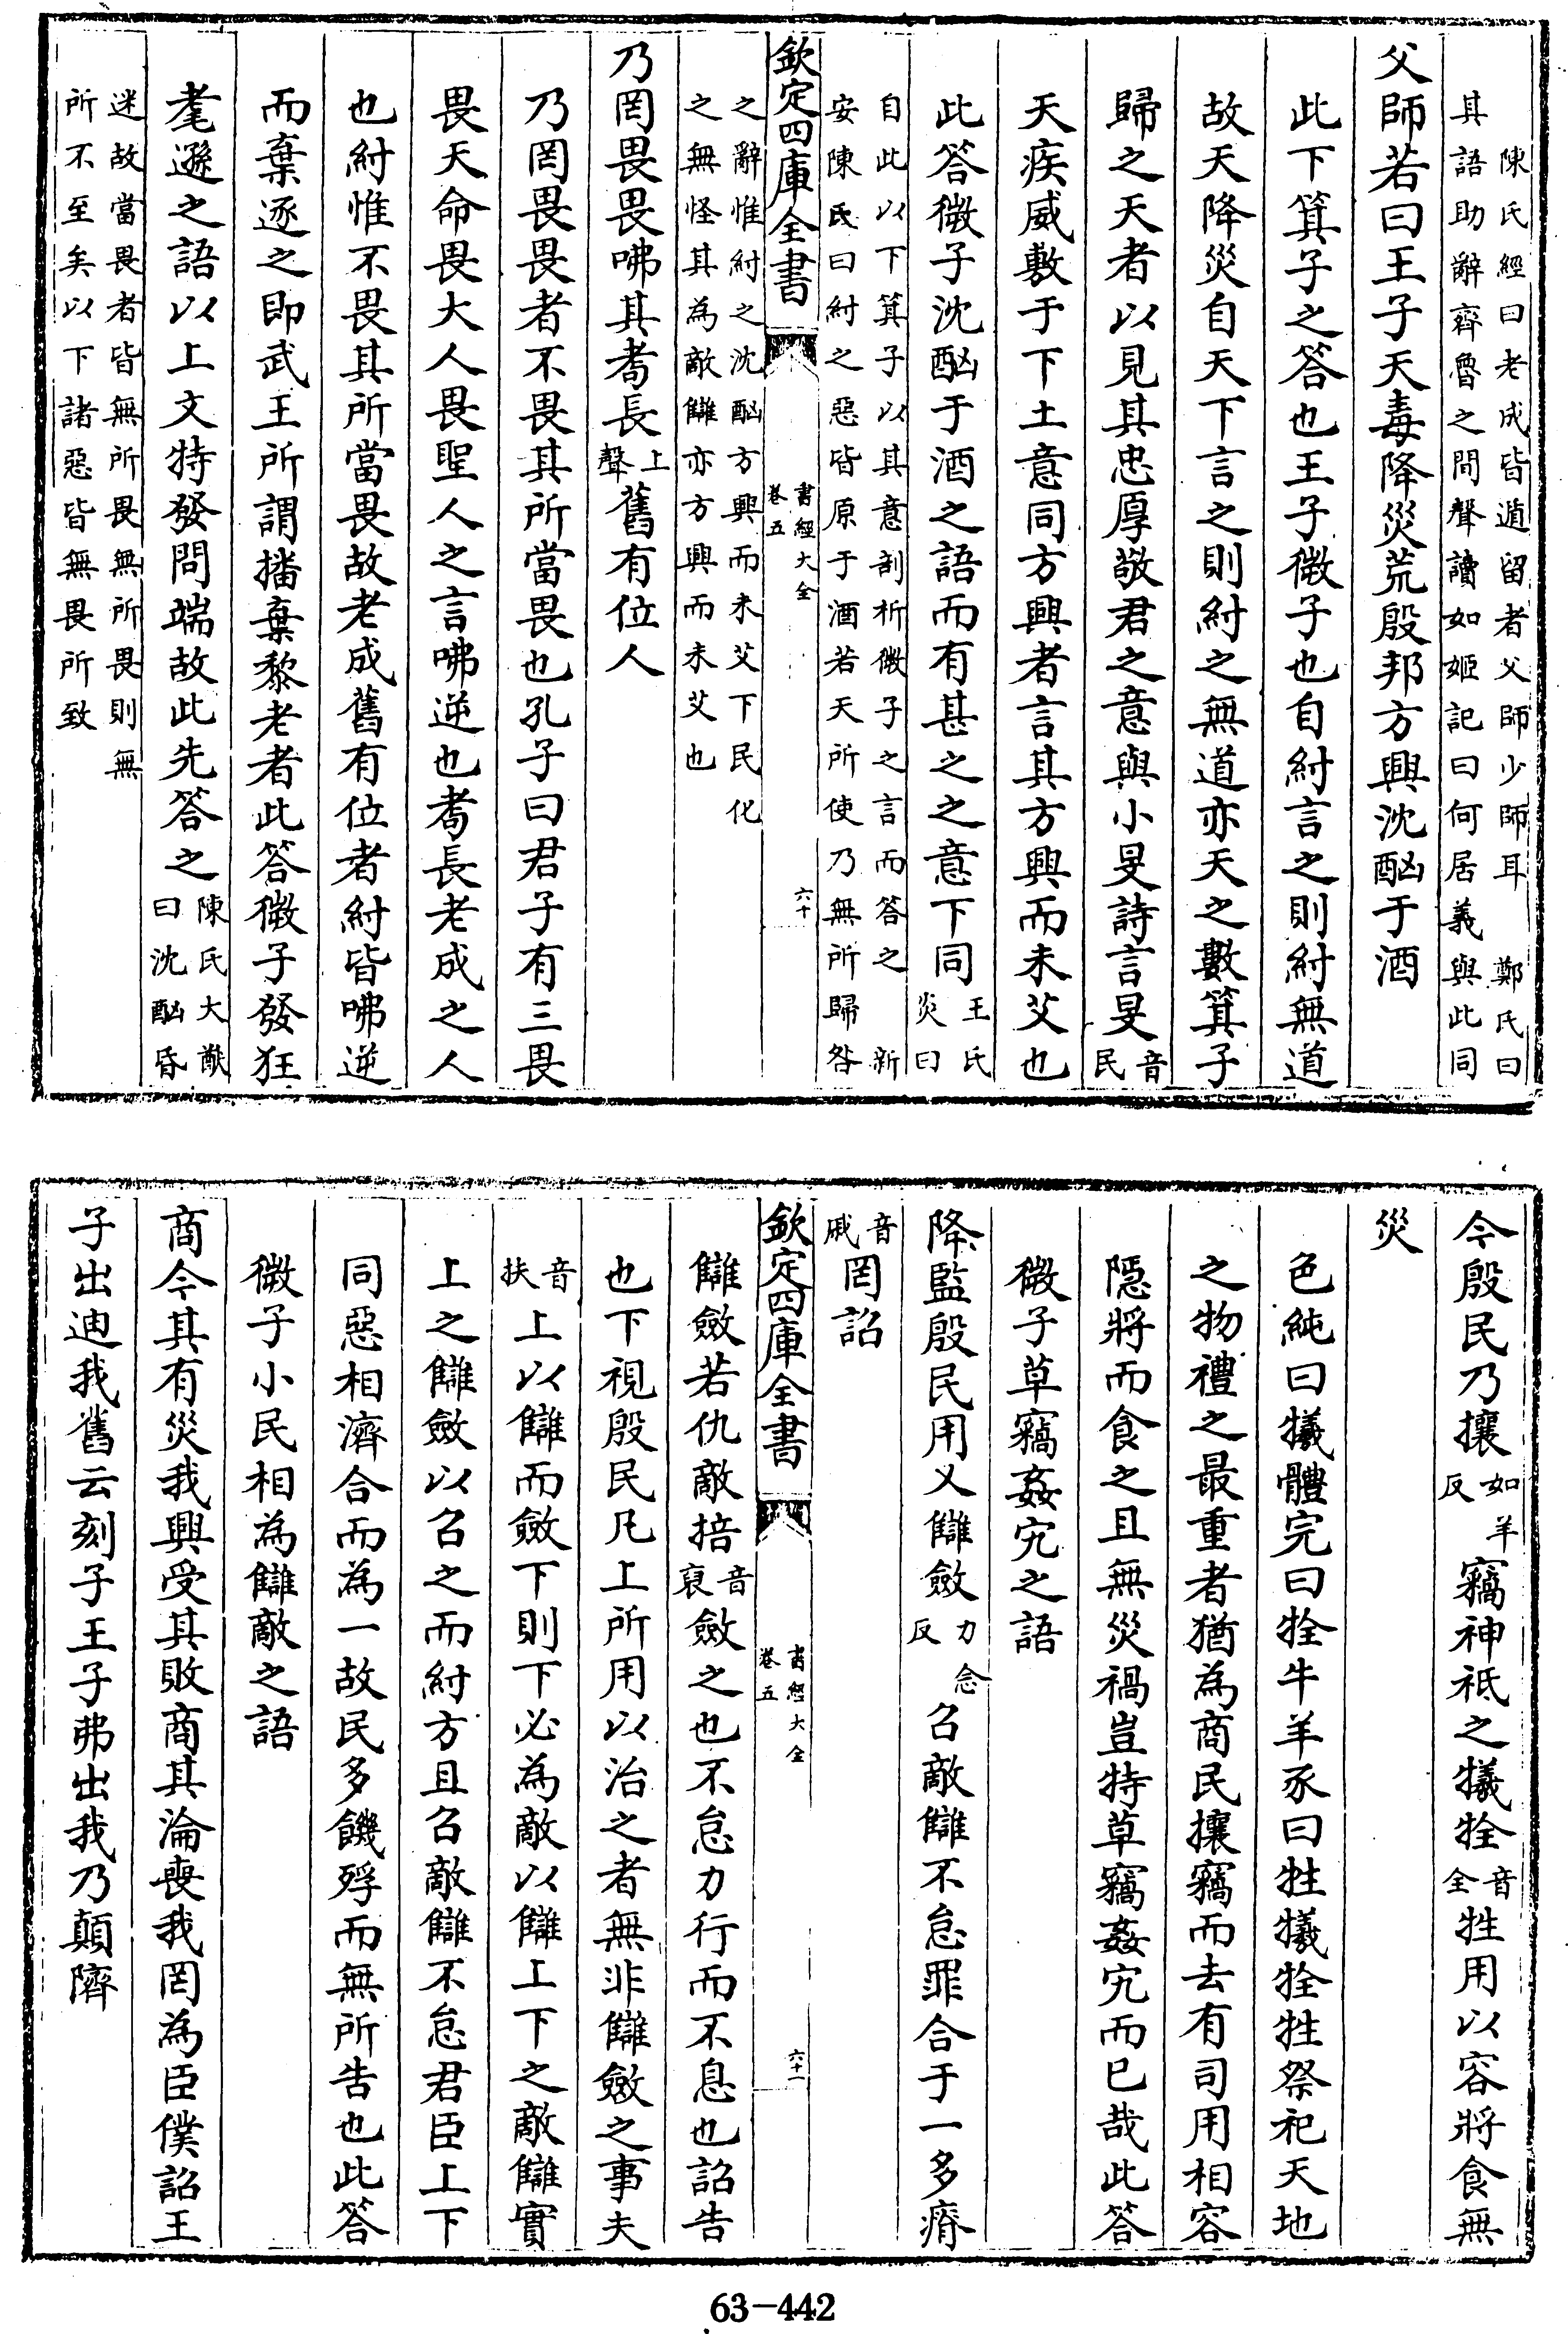 陳氏經曰老成皆遁留者父師少師耳　鄭氏曰
其語助辭齊魯之間聲讀如姬記曰何居義與此同
父師若曰王子天毒降災荒殷邦方興沈酗于酒
此下箕子之答也王子微子也自紂言之則紂無道
故天降災自天下言之則紂之無道亦天之數箕子
歸之天者以見其忠厚敬君之意與小旻詩言旻音民
天疾威敷于下土意同方興者言其方興而未艾也
此答微子沈酗于酒之語而有甚之之意下同王氏炎曰
自此以下箕子以其意剖析微子之言而答之　新
安陳氏曰紂之惡皆原于酒若天所使乃無所歸咎
欽定四庫全書　書經大全卷五　六十
之辭惟紂之沈酗方興而未艾下民化
之無怪其為敵讎亦方興而未艾也
乃罔畏畏咈其耇長上聲舊有位人
乃罔畏畏者不畏其所當畏也孔子曰君子有三畏
畏天命畏大人畏聖人之言咈逆也耇長老成之人
也紂惟不畏其所當畏故老成舊有位者紂皆咈逆
而棄逐之即武王所謂播棄黎老者此答微子發狂
耄遜之語以上文特發問端故此先答之陳氏大猷曰沈酗昏
迷故當畏者皆無所畏無所畏則無
所不至矣以下諸惡皆無畏所致
今殷民乃攘如羊反竊神祇之犧牷音全牲用以容將食無
災
色純曰犧體完曰牷牛羊豕曰牲犧牷牲祭祀天地
之物禮之最重者猶為商民攘竊而去有司用相容
隱將而食之且無災禍豈特草竊姦宄而已哉此答
微子草竊姦宄之語
降監殷民用乂讎斂力念反召敵讎不怠罪合于一多瘠
音戚罔詔
欽定四庫全書　書經大全卷五　六十一
讎斂若仇敵掊音裒斂之也不怠力行而不息也詔告
也下視殷民凡上所用以治之者無非讎斂之事夫
音扶上以讎而斂下則下必為敵以讎上下之敵讎實
上之讎斂以召之而紂方且召敵讎不怠君臣上下
同惡相濟合而為一故民多饑殍而無所告也此答
微子小民相為讎敵之語
商今其有災我興受其敗商其淪喪我罔為臣僕詔王
子出迪我舊云刻子王子弗出我乃顛隮
63-442